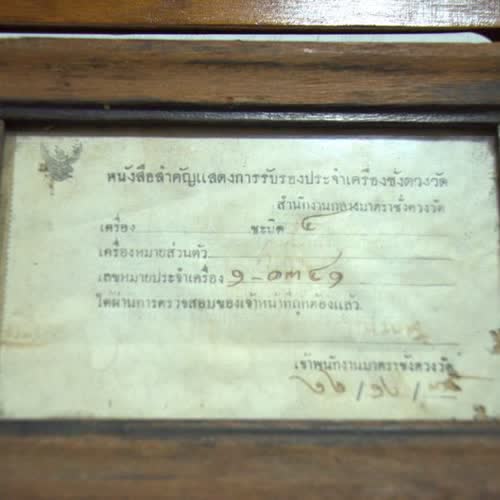 หนังสือสำคัญแสดงการรับรองประจำเครื่องชั่งตวงวัด
สำนักงานกลางมาตราชั่งตวงวัด
เครื่อง ชะนิด ๔
เครื่องหมายส่วนตัว
เลขหมายประจำเครื่อง ๑-๑๓๔๑
ได้ผ่านการตรวจสอบของเจ้าหน้าที่ถูกต้องแล้ว
เจ้าพนักงานมาตราชั่งตวงวัด